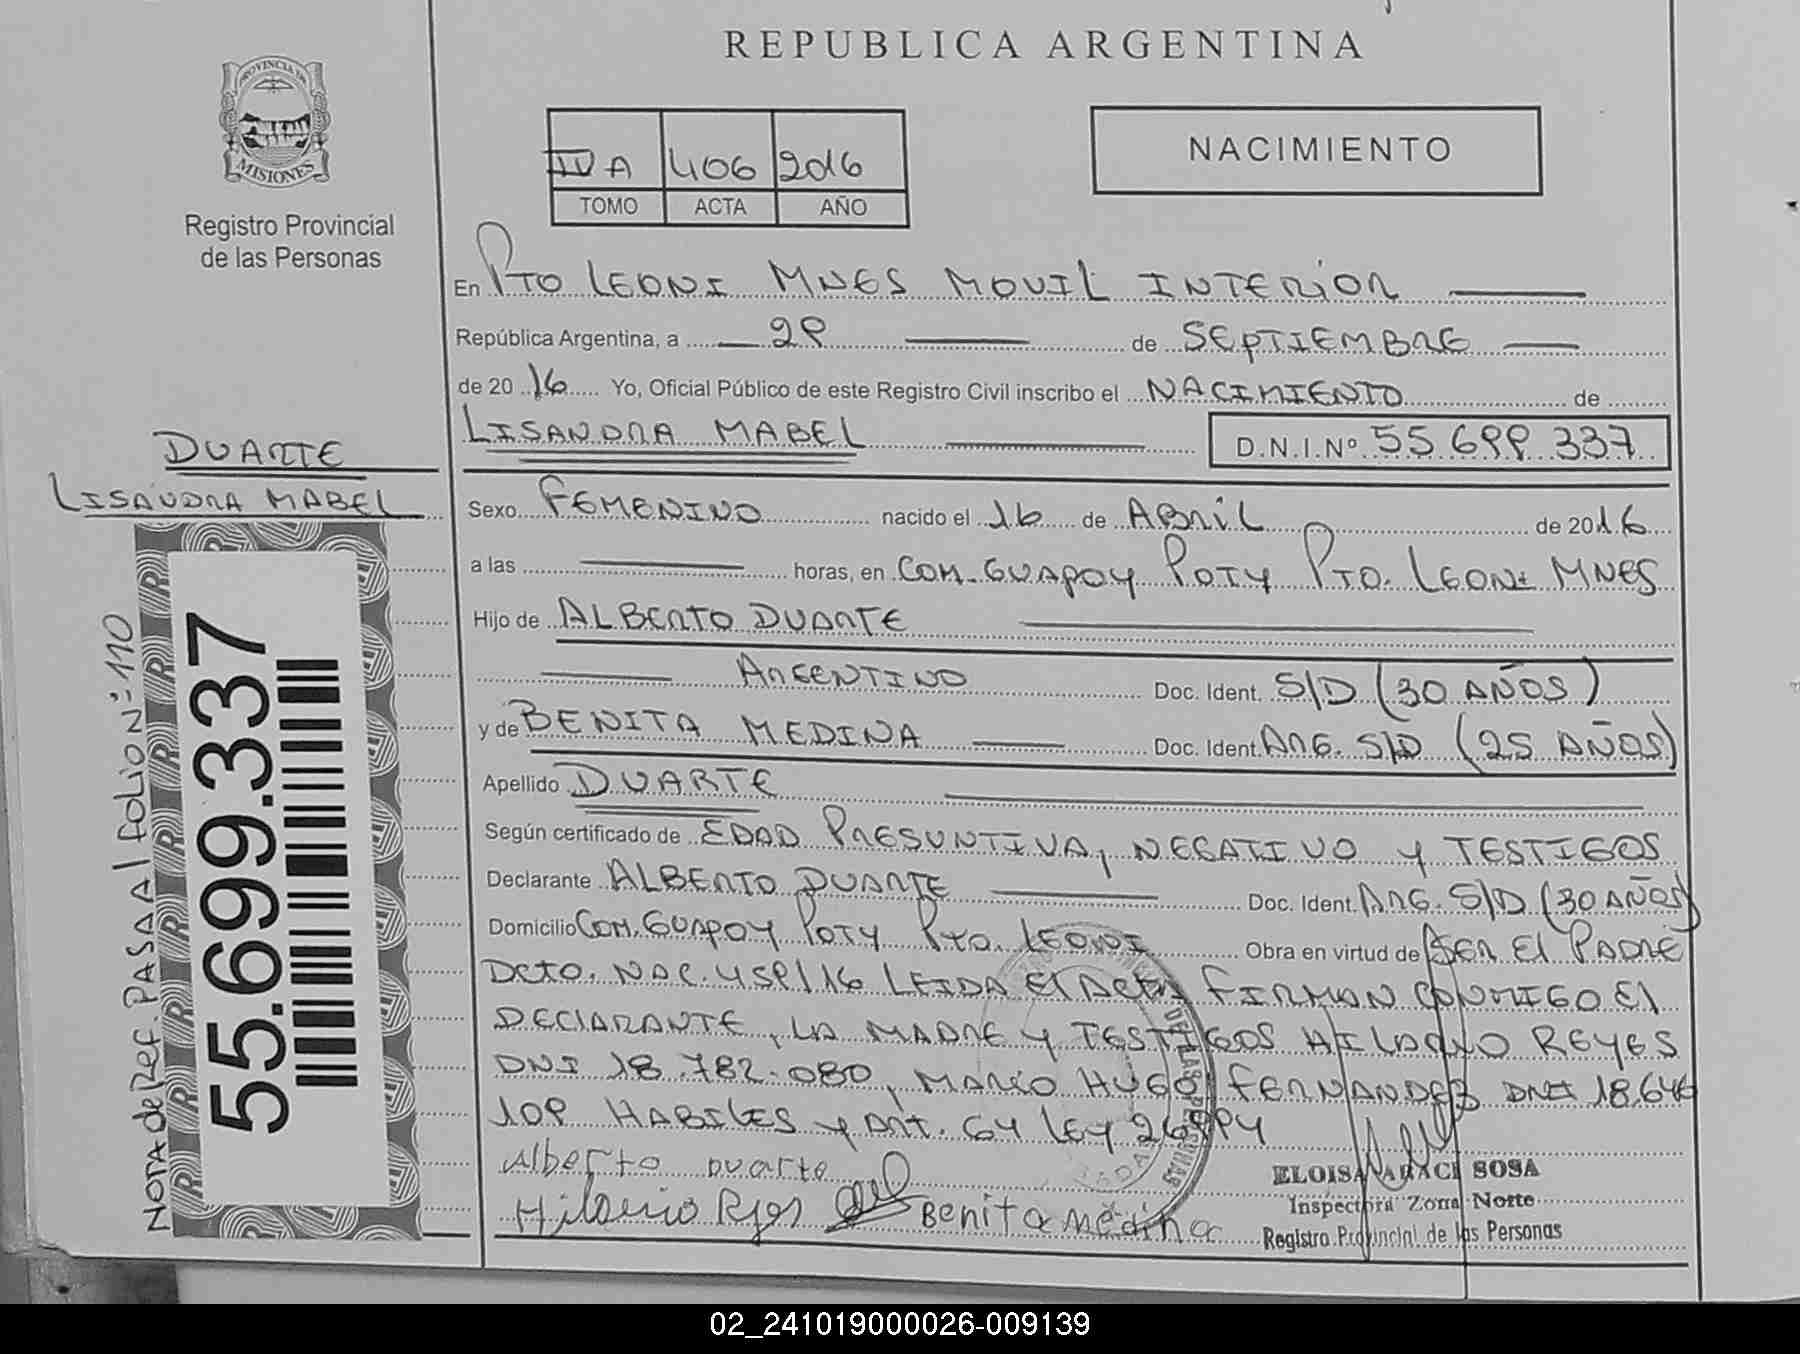 REPUBLICA ARGENTINA
PROVINCIA DE
MISIONES
Registro Provincial
de las Personas
IV A 406 2016
TOMO ACTA AÑO
NACIMIENTO
En PTO LEONI MNES MOVIL INTERIOR
República Argentina, a 29 de SEPTIEMBRE
de 20 16 Yo, Oficial Público de este Registro Civil inscribo el NACIMIENTO de
LISANDRA MABEL D.N.I.Nº 55.699.337
DUARTE
LISANDRA MABEL
Sexo FEMENINO nacido el 16 de ABRIL de 2016
a las horas, en COM. GUAPOY POTY PTO. LEONI MNES
Hijo de ALBERTO DUARTE
ARGENTINO Doc. Ident. S/D (30 AÑOS)
y de BENITA MEDINA Doc. Ident. ARG. S/D (25 AÑOS)
Apellido DUARTE
Según certificado de EDAD PRESUNTIVA, NEGATIVO Y TESTIGOS
Declarante ALBERTO DUARTE Doc. Ident. ARG. S/D (30 AÑOS)
Domicilio COM. GUAPOY POTY PTO. LEONI Obra en virtud de SER El PADRE
DCTO. NAC. 459/16 LEIDA El ACTA FIRMAN CONMIGO El
DECLARANTE, LA MADRE Y TESTIGOS HILARIO REYES
DNI 18.782.080, MARIO HUGO FERNANDEZ DNI 18.646
109 HABILES Y ART. 64 LEY 26994
Alberto Duarte
Hilario Benita medina
ELOISA ARACI SOSA
Inspectora Zona Norte
Registro Provincial de las Personas
NOTA de Ref. PASA Al folio Nº 110
55.699.337
02_241019000026-009139